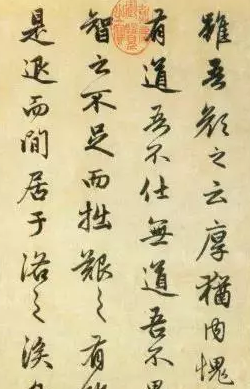 雖吾顏之云厚猶内愧
有道吾不仕無道吾不
智之不足而拙艱之有
是退而間居于洛之涘